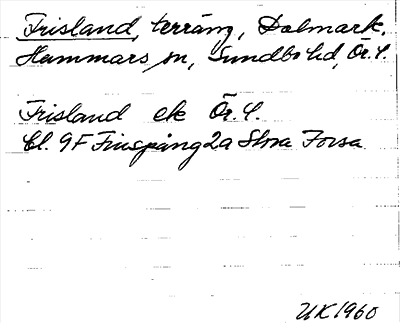 Frisland, terräng, Dalmark.
Hammars sn, Sundbo hd, Ör. l.
Frisland ek Ör. l.
Bl. 9F Finspång 2a Stora Forsa
UK 1960